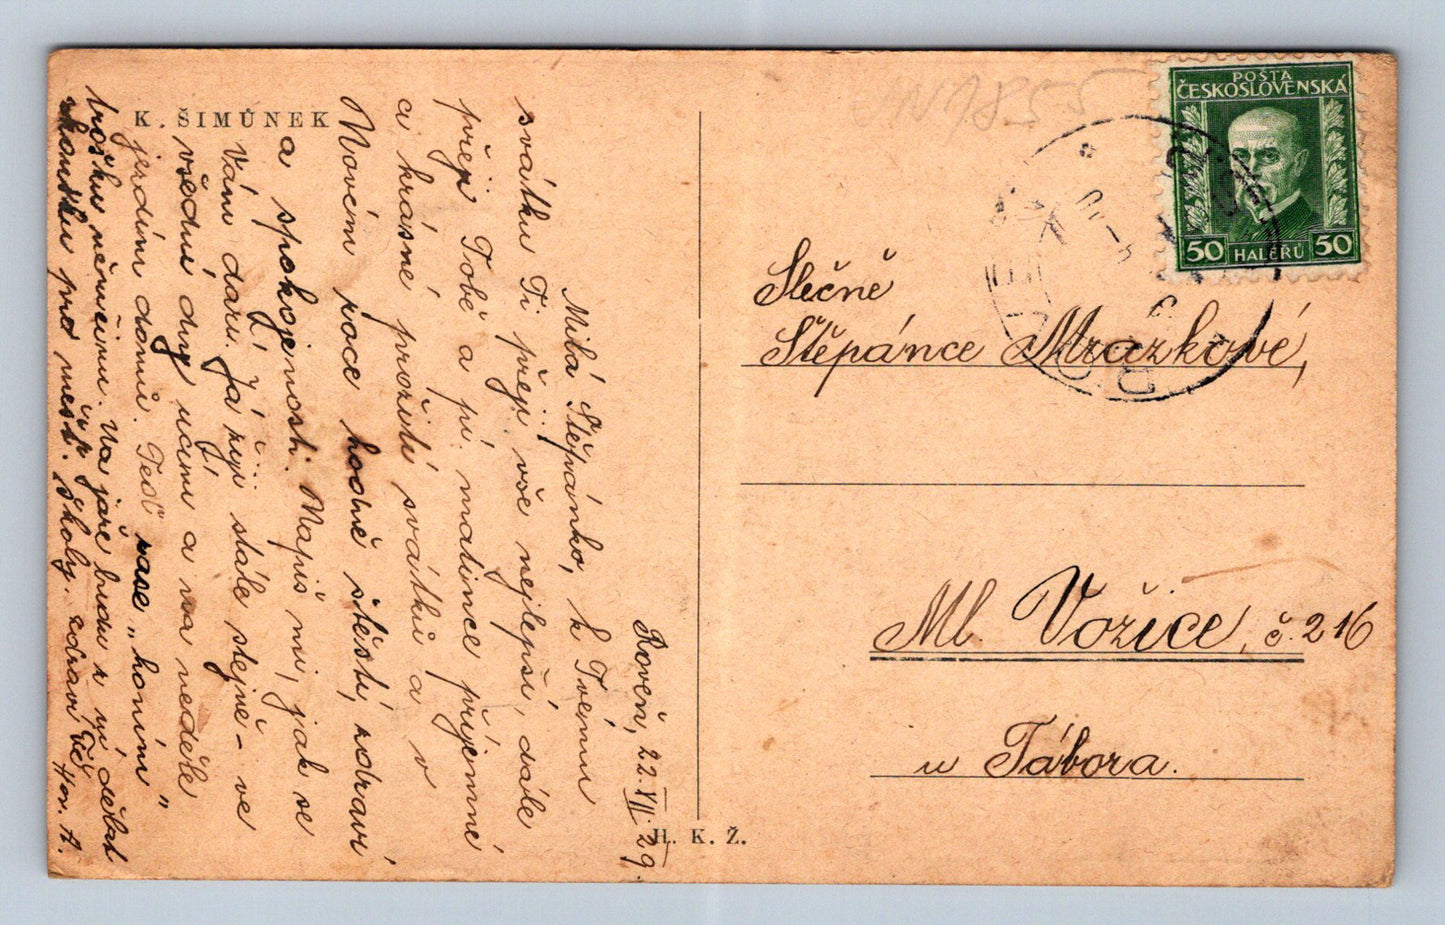 K. ŠIMŮNEK
Roveň, 22.XII.29.
Milá Štěpánko, k Tvému
svátku Ti přeji vše nejlepší, dále
přeji Tobě a pí. matince příjemné
a krásné prožití svátků a v
Novém roce hodně štěstí, zdraví
a spokojenosti. Napiš mi, jak se
Vám daří. Já žiji stále stejně – ve
všední dny učím a na neděle
jezdím domů. Teď zase „honím"
trošku němčinu. Na jaře budu z ní dělat
zkoušku pro měšť. školy. Zdraví Tě
H. K. Ž.
POŠTA
ČESKOSLOVENSKÁ
50 HALÉŘŮ 50
Slečně
Štěpánce Mrázkové,
Ml. Vožice, č. 216
u Tábora.